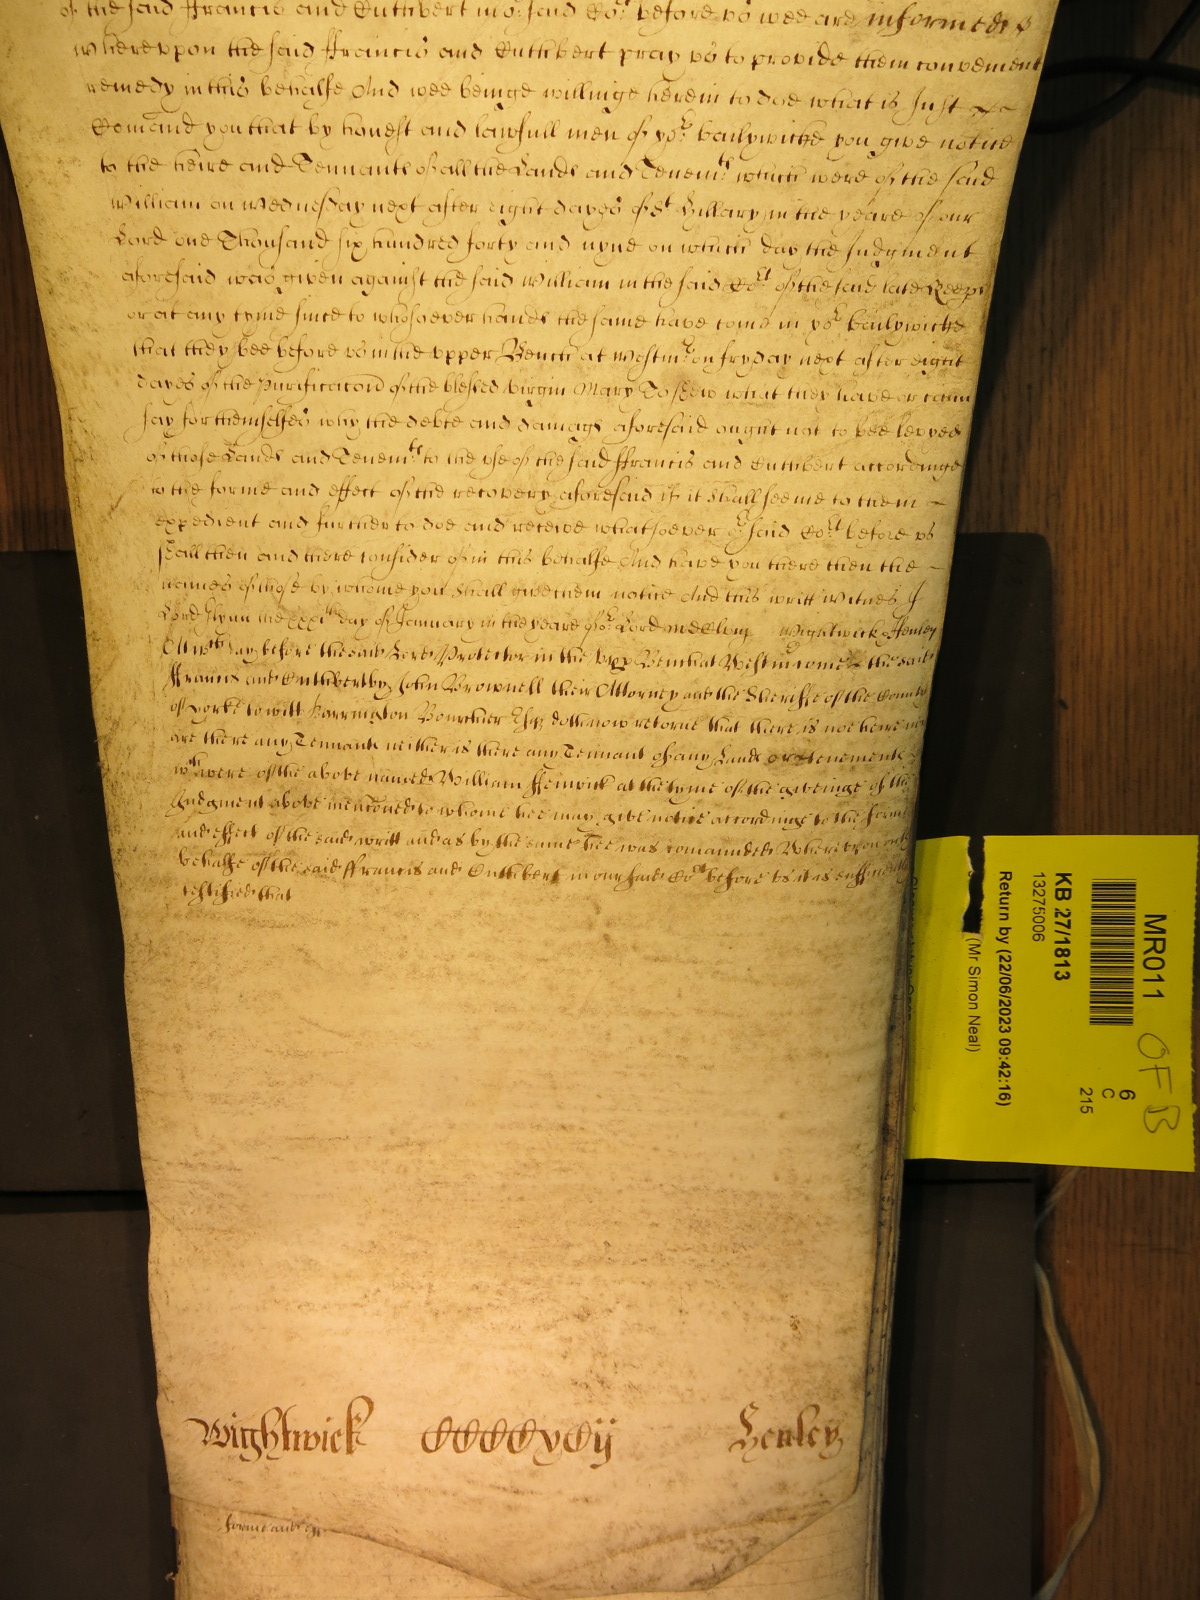 of the said Francis and Cuthbert in o.r said Co.rt before vs wee are informed
wherevpon the said ffrancis and Cuthbert pray vs to provide them convenient
remedy in this behalfe And wee beinge willinge herein to doe what is Just
Comand you that by honest and lawfull men of yo.r bailywicke you give notice
to the heire and Tennants of all the Lands and Tenem.ts which were of the said
William on Wednesday next after eight dayes of S.t Hillary in the yeare of our
Lord one Thousand six hundred forty and nyne on which day the Judgment
aforesaid was given against the said William in the said Co.rt of the said late Keeps
or at any tyme since to whosoever hands the same have come in yo.r bailywicke
that they bee before vs in the vpper Bench at Westm.r on fryday next after eight
dayes of the Purificacon of the blessed Virgin Mary To shew what they have or cann
say for themselfes why the debte and damags aforesaid ought not to bee levyed
of those Lands and Tenem.ts to the vse of the said ffrancis and Cuthbert accordinge
to the forme and effect of the recovery aforesaid if it shall seeme to them
expedient and further to doe and receive whatsoever o.r said Co.rt before vs
shall then and there consider of in this behalfe And have you there then the
names of those by whome you shall give them notice And this writt Witnes J
Lord Glynn the xxxi.th day of January in the yeare of o.r Lord Wightwick Henley
Att w.ch day before the said Lord Protector in the vpp Bench at Westm come the said
ffrancis and Cuthbert by John Brownell their Attorney and the Sheriffe of the County
of Yorke to witt Barrington Bourchier Esq doth now retorne that there is noe heire nor
are there any Tennants neither is there any Tennant of any Lands or tenements
w.ch were of the above named William ffenwick at the tyme of the giveinge of the
Judgment above menconed to whome hee may give notice accordinge to the forme
and effect of the said writt and as by the same hee was comaunded Wherevpon on the
behalfe of the said ffrancis and Cuthbert in our said Co.rt before vs it is sufficiently
testified that
Wightwick CCCCxCij Henley
forme and
MR011
OF B
6
C
215
KB 27/1813
13275006
Return by (22/06/2023 09:42:16)
(Mr Simon Neal)